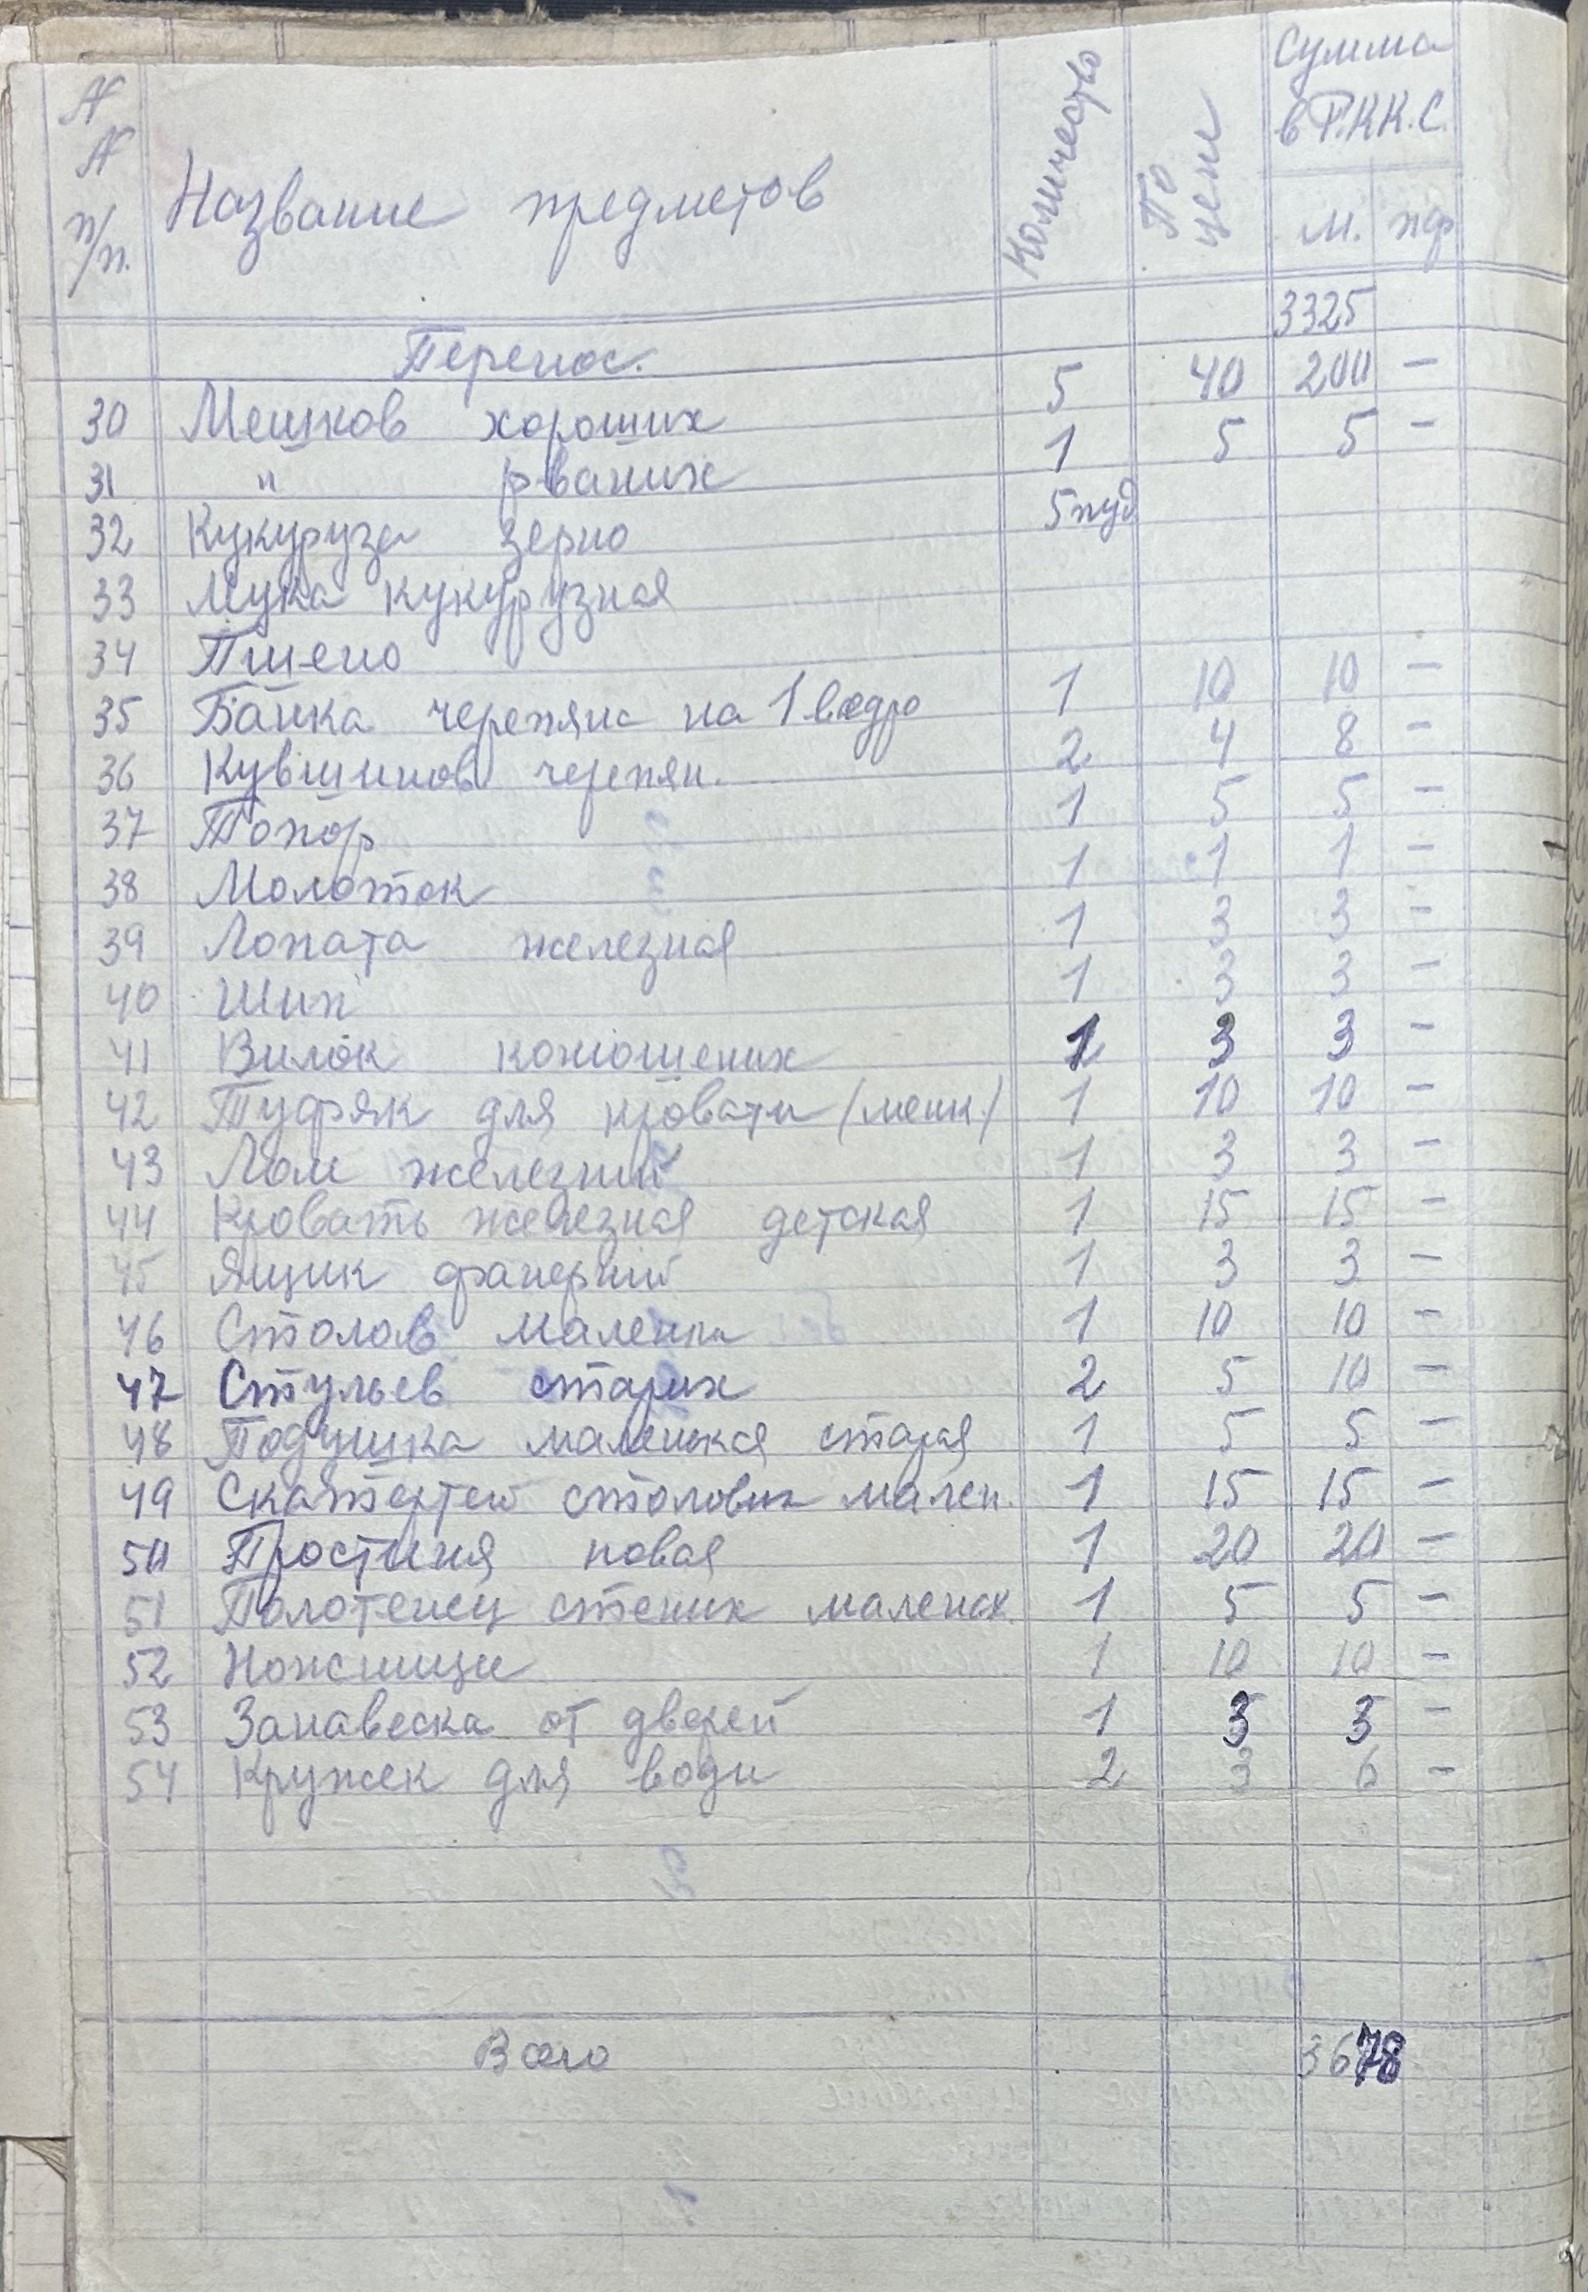 № № п/п. Название предметов Количество По цене Сумма в Р.К.К.С.
м. пф
Перенос. 3325
30 Мешков хороших 5 40 200 -
31 " рваних 1 5 5 -
32 Кукуруза зерно 5 пуд
33 Мука кукурузная
34 Пшено
35 Банка черепяна на 1 ведро 1 10 10 -
36 Кувшинов черепян. 2 4 8 -
37 Топор 1 5 5 -
38 Молоток 1 1 1 -
39 Лопата железная 1 3 3 -
40 Шип 1 3 3 -
41 Вилок конюшених 1 3 3 -
42 Туфяк для кровати (мешк.) 1 10 10 -
43 Лом железний 1 3 3 -
44 Кровать железная детская 1 15 15 -
45 Ящик фанерний 1 3 3 -
46 Столов маленки 1 10 10 -
47 Стульев старих 2 5 10 -
48 Подушка маленькая старая 1 5 5 -
49 Скатертей столових мален. 1 15 15 -
50 Простиня новая 1 20 20 -
51 Полотенец стених маленох. 1 5 5 -
52 Ножници 1 10 10 -
53 Занавеска от дверей 1 -
54 Кружек для води 2 3 6 -
Всего 3678